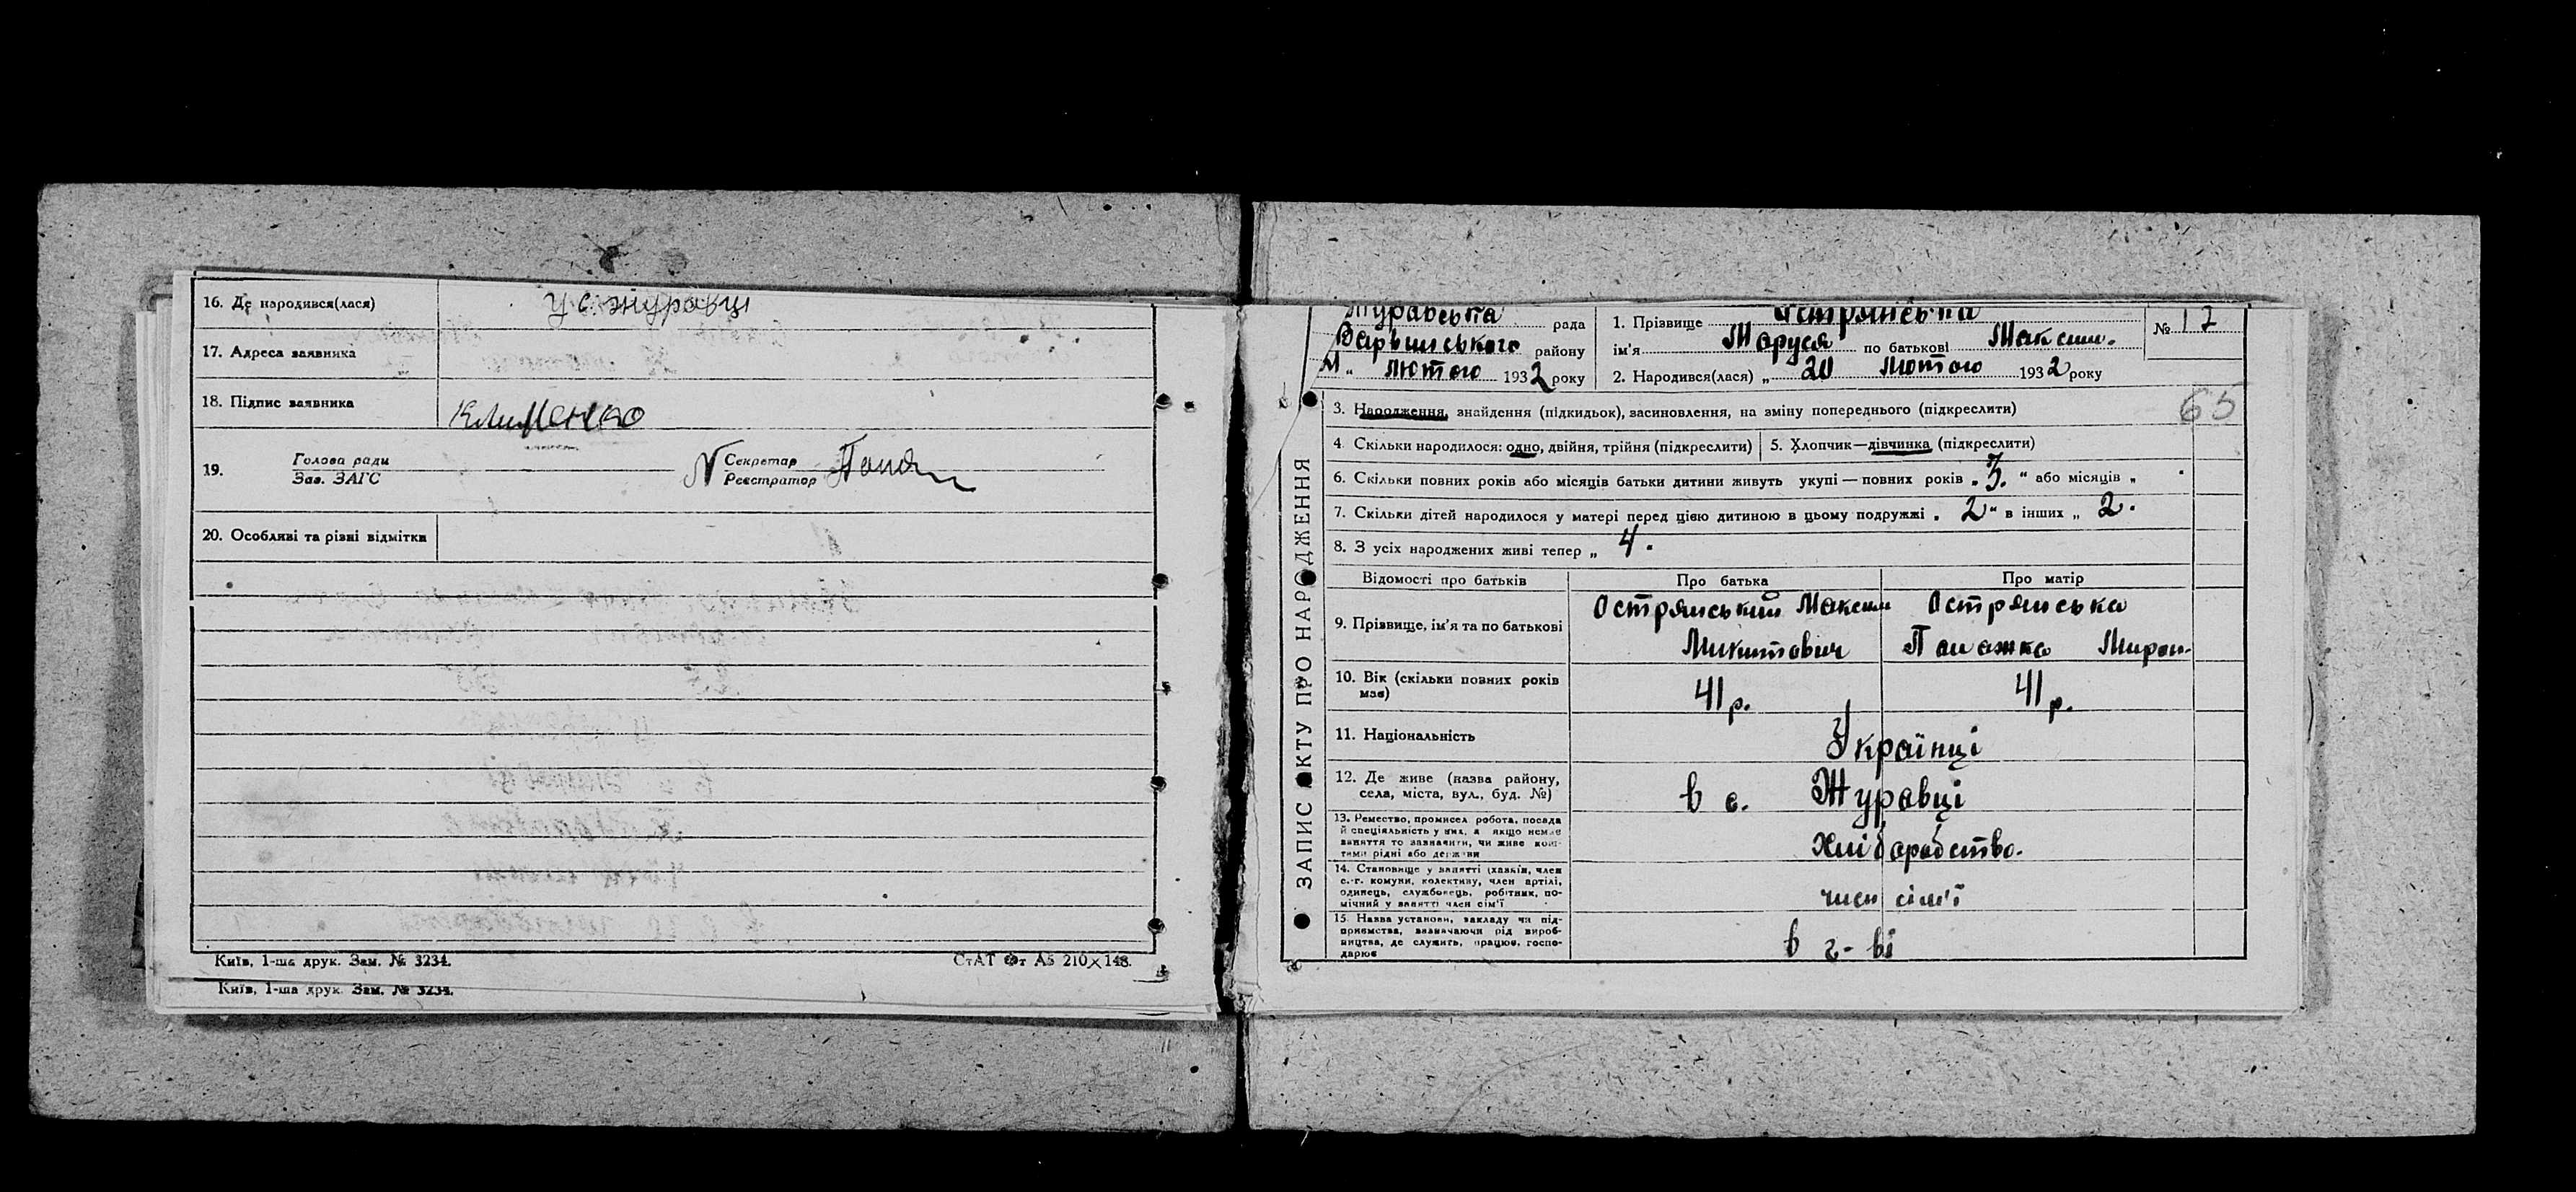 16. Де народився(лася) у с. Журавці
17. Адреса заявника
18. Підпис заявника Клименко
19. Голова ради
Зав. ЗАГС
Секретар
Реєстратор
20. Особливі та різні відмітки
Київ, 1-ша друк. Зам. № 3234.
СтАТ Фт А5 210×148.
Київ, 1-ша друк. Зам. № 3234.
ЗАПИС АКТУ ПРО НАРОДЖЕННЯ
Журавська рада
Варвинського району
„ лютого 1932 року
1. Прізвище Острянська
ім'я Маруся по батькові Максим.
2. Народився(лася) „ 20 лютого 1932 року
№ 17
65
3. Народження, знайдення (підкидьок), засиновлення, на зміну попереднього (підкреслити)
4. Скільки народилося: одно, двійня, трійня (підкреслити) 5. Хлопчик—дівчинка (підкреслити)
6. Скільки повних років або місяців батьки дитини живуть укупі — повних років „ 3. “ або місяців „
7. Скільки дітей народилося у матері перед цією дитиною в цьому подружжі „ 2 “ в інших „ 2.
8. З усіх народжених живі тепер „ 4.
Відомості про батьків Про батька Про матір
9. Прізвище, ім'я та по батькові Острянський Максим Острянська
Микитович Палажка Мирон.
10. Вік (скільки повних років має) 41 р. 41 р.
11. Національність Українці
12. Де живе (назва району, села, міста, вул., буд. №) в с. Журавці
13. Ремество, промисел робота, посада
й спеціяльність у них, а якщо немає
заняття то зазначити, чи живе кош-
тами рідні або держави
Хліборобство.
14. Становище у занятті (хазяїн, член
с.-г. комуни, колективу, член артілі,
одинець, службовець, робітник, по-
мічний у занятті член сім'ї
член сім'ї
15. Назва установи, закладу чи під-
приємства, зазначаючи рід вироб-
ництва, де служить, працює, госпо-
дарює
в г-ві